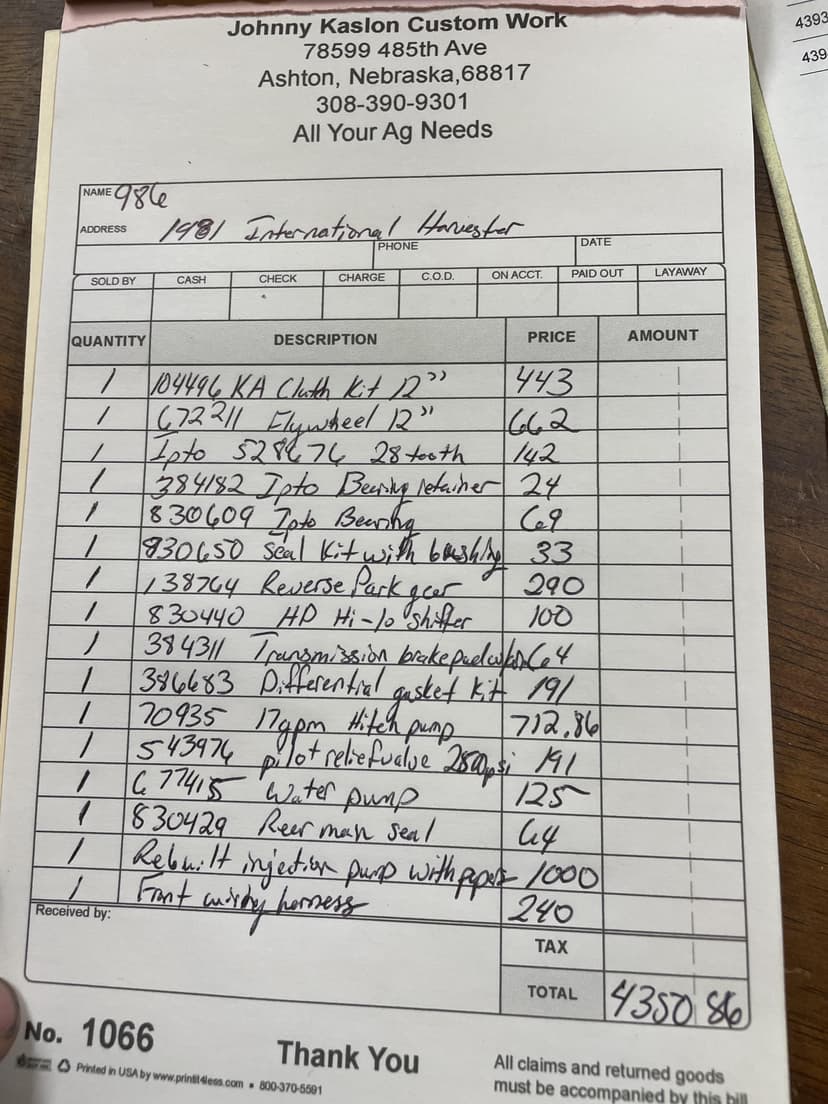 Johnny Kaslon Custom Work
78599 485th Ave
Ashton, Nebraska,68817
308-390-9301
All Your Ag Needs
4393
439
NAME 986
ADDRESS 1981 International Harvester
PHONE DATE
SOLD BY CASH CHECK CHARGE C.O.D. ON ACCT. PAID OUT LAYAWAY
QUANTITY DESCRIPTION PRICE AMOUNT
1 104496 KA Clutch Kit 12" 443
1 672211 Flywheel 12" 662
1 Ipto 528676 28 tooth 142
1 384182 Ipto Bearing retainer 24
1 830609 Ipto Bearing 69
1 830650 Seal Kit with bushing 33
1 138764 Reverse Park gear 290
1 830440 HD Hi-lo Shifter 100
1 384311 Transmission brake pad 64
1 386683 Differential gasket Kit 191
1 70935 17gpm Hitch pump 712.86
1 543976 pilot relief valve psi 191
1 677415 Water pump 125
1 830429 Rear man seal 64
1 Rebuilt injection pump with papers 1000
1 Front wiring harness 240
Received by:
TAX
TOTAL 4350 86
No. 1066
Thank You
All claims and returned goods
must be accompanied by this bill
Printed in USA by www.printit4less.com • 800-370-5591